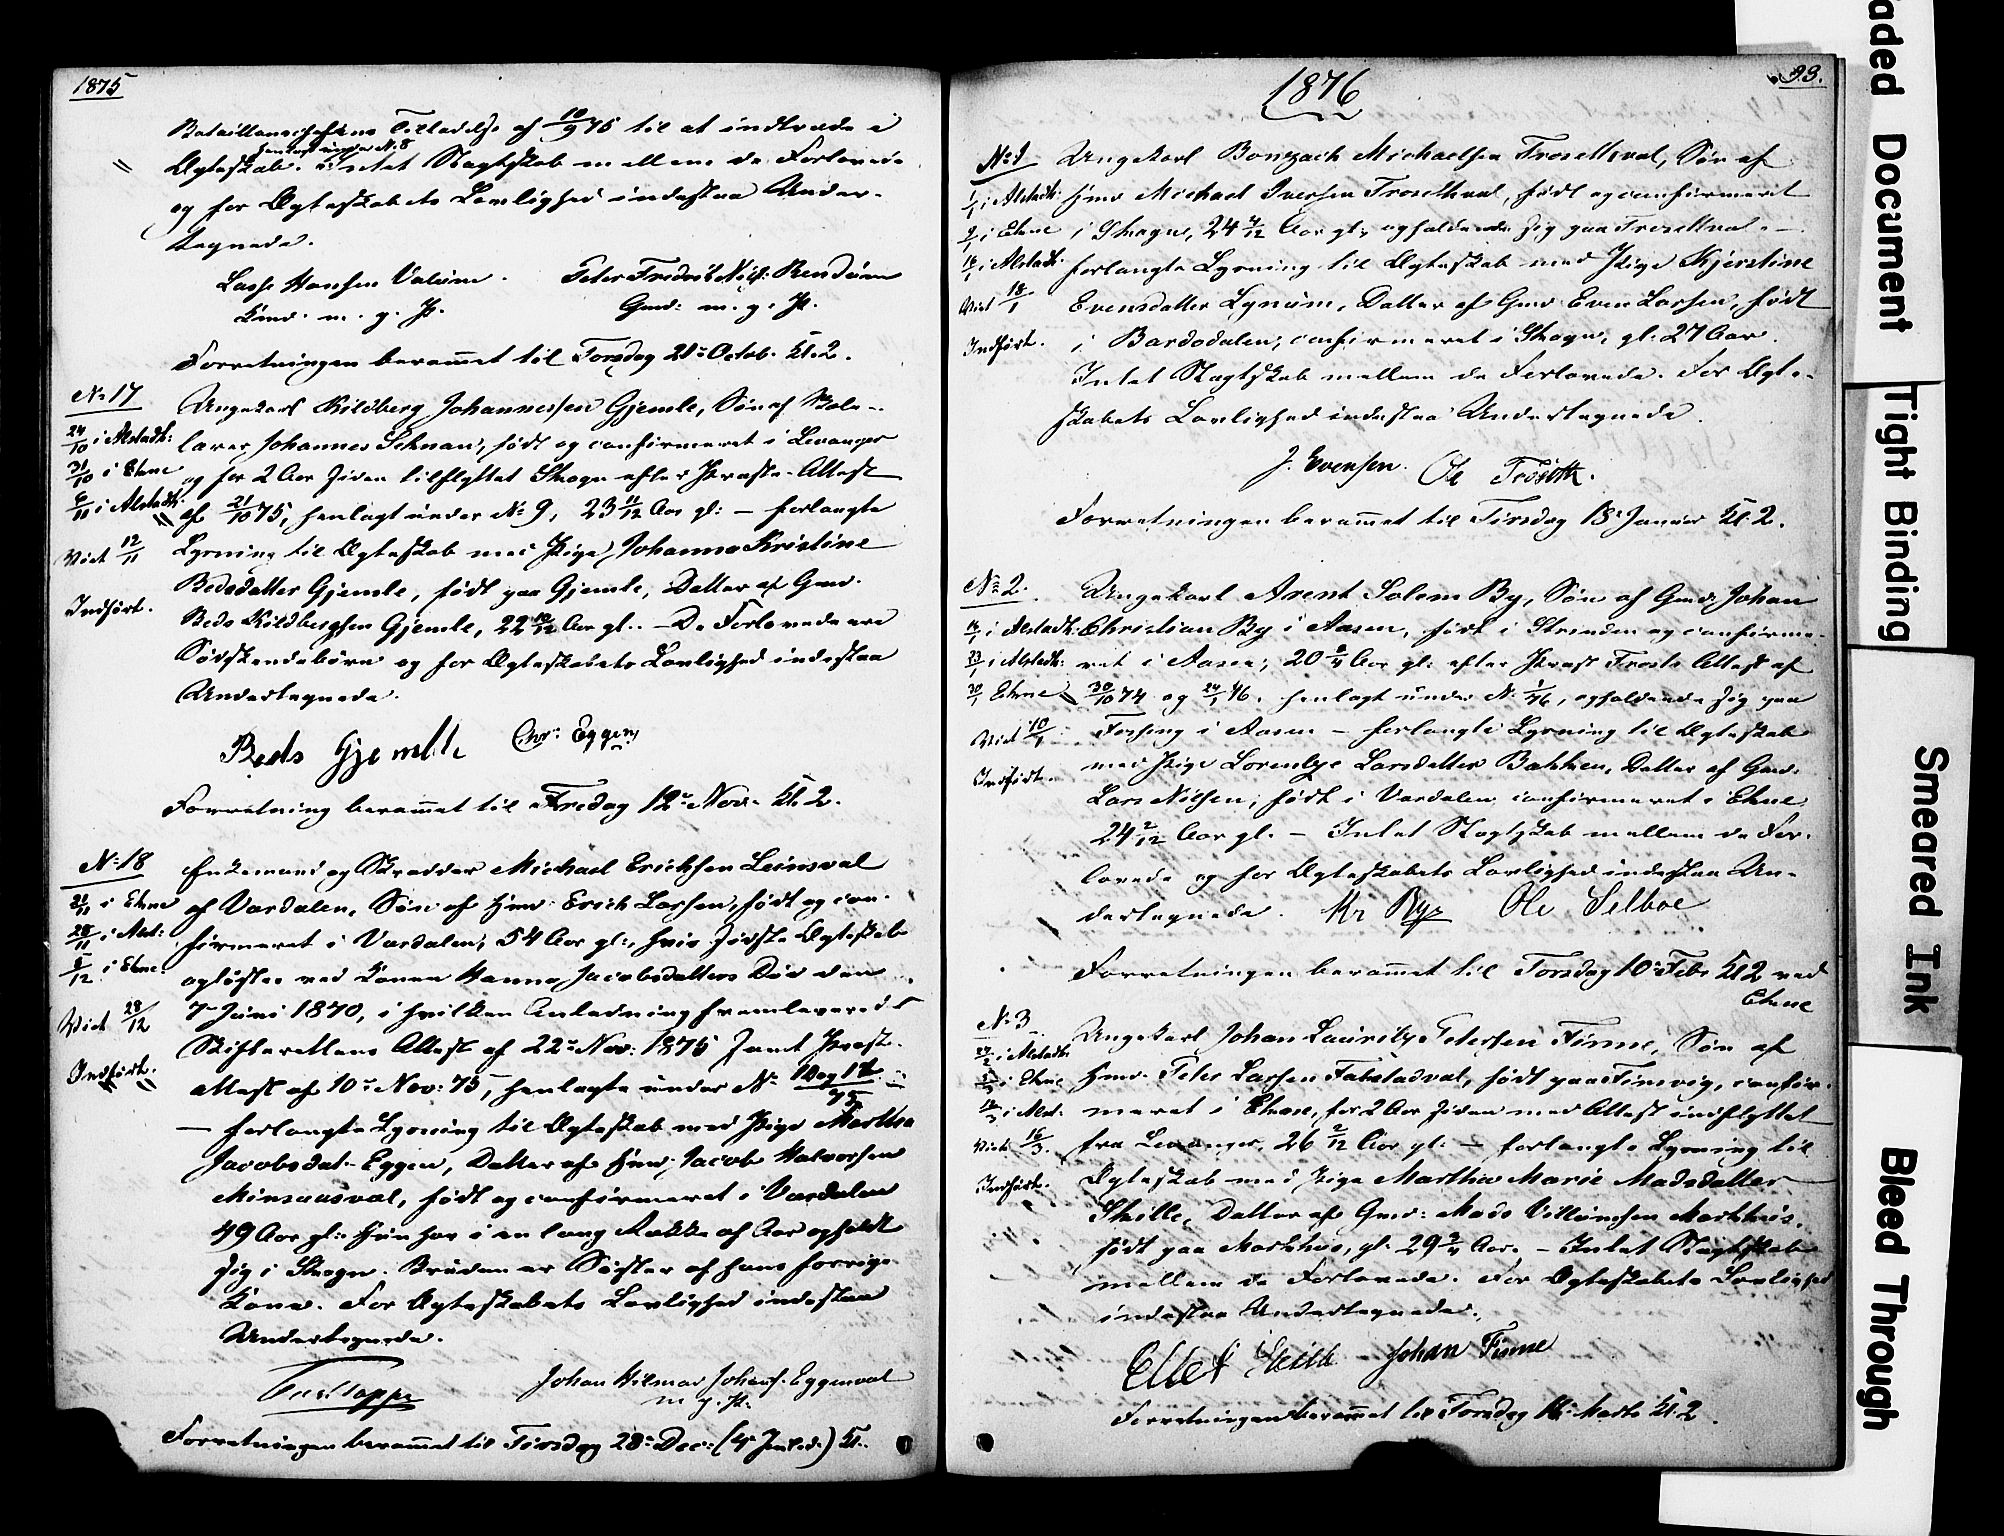 1875
Bataillonschefens Tilladelse af 10/9 75 til at indtræde i
henlagt under N. 8
Ægteskab. intet Slægtskab mellem de Forlovede
og for Ægteskabets Lovlighed indestaa Under-
tegnede.
Lasse Hansen Valum. Peter Fredrik
Gmd. m. p. P. Gmd: m. p. P.
Forretningen berammet til Torsdag 21de Octob. Kl. 2.
No 17
24/10 i Alstadh:
31/10 i Ekne
6/11 i Alstadh:
Viet 12/11
Indført.
Ungekarl Kildberg Johannessen Gjemle, Søn af Skole-
lærer Johannes Schnau, født og confirmeret i Levanger
og for 2 Aar siden tilflyttet Skogn efter Præste-Attest
af 21/10 75, henlagt under No 9, 23 11/12 Aar gl: – forlangte
Lysning til Ægteskab med Pige Johanna Kristine
Bedsdatter Gjemle, født paa Gjemle, Datter af Gmd.
Beds Kildbergsen Gjemle, 22 10/12 Aar gl. – De Forlovede ere
Sødskendebørn og for Ægteskabets Lovlighed indestaa
Undertegnede.
Beds Gjemble Chr: Eggen
Forretning berammet til Fredag 12te Nov. Kl. 2.
No 18
21/11 i Ekne
28/11 i Alst:
5/12 i Ekne.
Viet 28/12
Indført.
Enkemand og Skrædder Michael Erichsen Leinsval
af Værdalen, Søn af Hmd. Erich Larsen, født og con-
firmeret i Værdalen, 54 Aar gl:, hvis sidste Ægteskab
opløstes ved Konen Hanna Jacobsdatters Død den
7de Juni 1870, i hvilken Anledning fremleveredes
Skifterettens Attest af 22de Nov: 1875 samt Præst-
attest af 10de Nov: 75, henlagte under No 10 og 12/75
– forlangte Lysning til Ægteskab med Pige Martha
Jacobsdat. Eggen, Datter af Hmd: Jacob Halvorsen
Minsaasval, født og confirmeret i Værdalen
49 Aar gl: Hun har i en lang Række af Aar opholdt
sig i Skogn. Bruden er Søster af hans forrige
Kone. For Ægteskabets Lovlighed indestaa
Undertegnede.
Johan Hilmar Johans. Eggenval
m. p. P.
Forretningen berammet til Tirsdag 28de Dec: (4de Juled.) Kl.
93.
1876
No 1
1/1 i Alstadh:
9/1 i Ekne
16/1 i Alstadh:
Viet 18/1
Indført.
Ungekarl Michaelsen Trosethval, Søn af
Hmd Michael Iversen Trosethval, født og confirmeret
i Skogn, 24 Aar gl:, opholdende sig paa Trosethval –
forlangte Lysning til Ægteskab med Pige Kjerstine
Evensdatter Lynum, Datter af Gmd Even Larsen, født
i Bardodalen, confirmeret i Skogn, gl: 27 Aar.
Intet Slægtskab mellem de Forlovede. For Ægte-
skabets Lovlighed indestaa Undertegnede.
J. Evensen. Ole Troseth.
Forretningen berammet til Tirsdag 18de Januar Kl. 2.
No 2.
16/1 i Alstadh:
23/1 i Alstadh:
30/1 Ekne
Viet 10/
Indført.
Ungekarl Arent Solem By, Søn af Gmd. Johan
Christian By i Aasen, født i Strinden og confirme-
ret i Aasen, 20 3/4 Aar gl: efter Præst Attest af
30/10 74 og 24/1 76. henlagt under N: 1/76, opholdende sig paa
i Aasen – forlangte Lysning til Ægteskab
med Pige Lorentze Larsdatter Bakken, Datter af Gmd.
Lars Nilsen, født i Værdalen, confirmeret i Ekne
24 2/12 Aar gl. – Intet Slægtskab mellem de For-
lovede og for Ægteskabets Lovlighed indestaa Un-
dertegnede. Ole Selboe
Forretningen berammet til Torsdag 10de Feb: Kl 2 ved
Ekne
No 3
27/2 i Alstadh:
i Ekne
12/3 i Alst:
Viet 16/3.
Indført.
Ungekarl Johan Lauritz Petersen Finne, Søn af
Hmd. Peter Larsen Fabstadval, født paa Finsvig, confir-
meret i Ekne, for 2 Aar siden med Attest indflyttet
fra Levanger, 26 2/12 Aar gl: – forlangte Lysning til
Ægteskab med Pige Martha Marie Madsdatter
Skille, Datter af Gmd: Mads Villumsen Markhus,
født paa Markhus, gl. 29 3/4 Aar. – Intet Slægtskab
mellem de Forlovede. For Ægteskabets Lovlighed
indestaa Undertegnede.
Johan Finne
Forretningen berammet til Torsdag 16de Marts Kl. 2.
aded Document
Tight Binding
Smeared Ink
Bleed Through